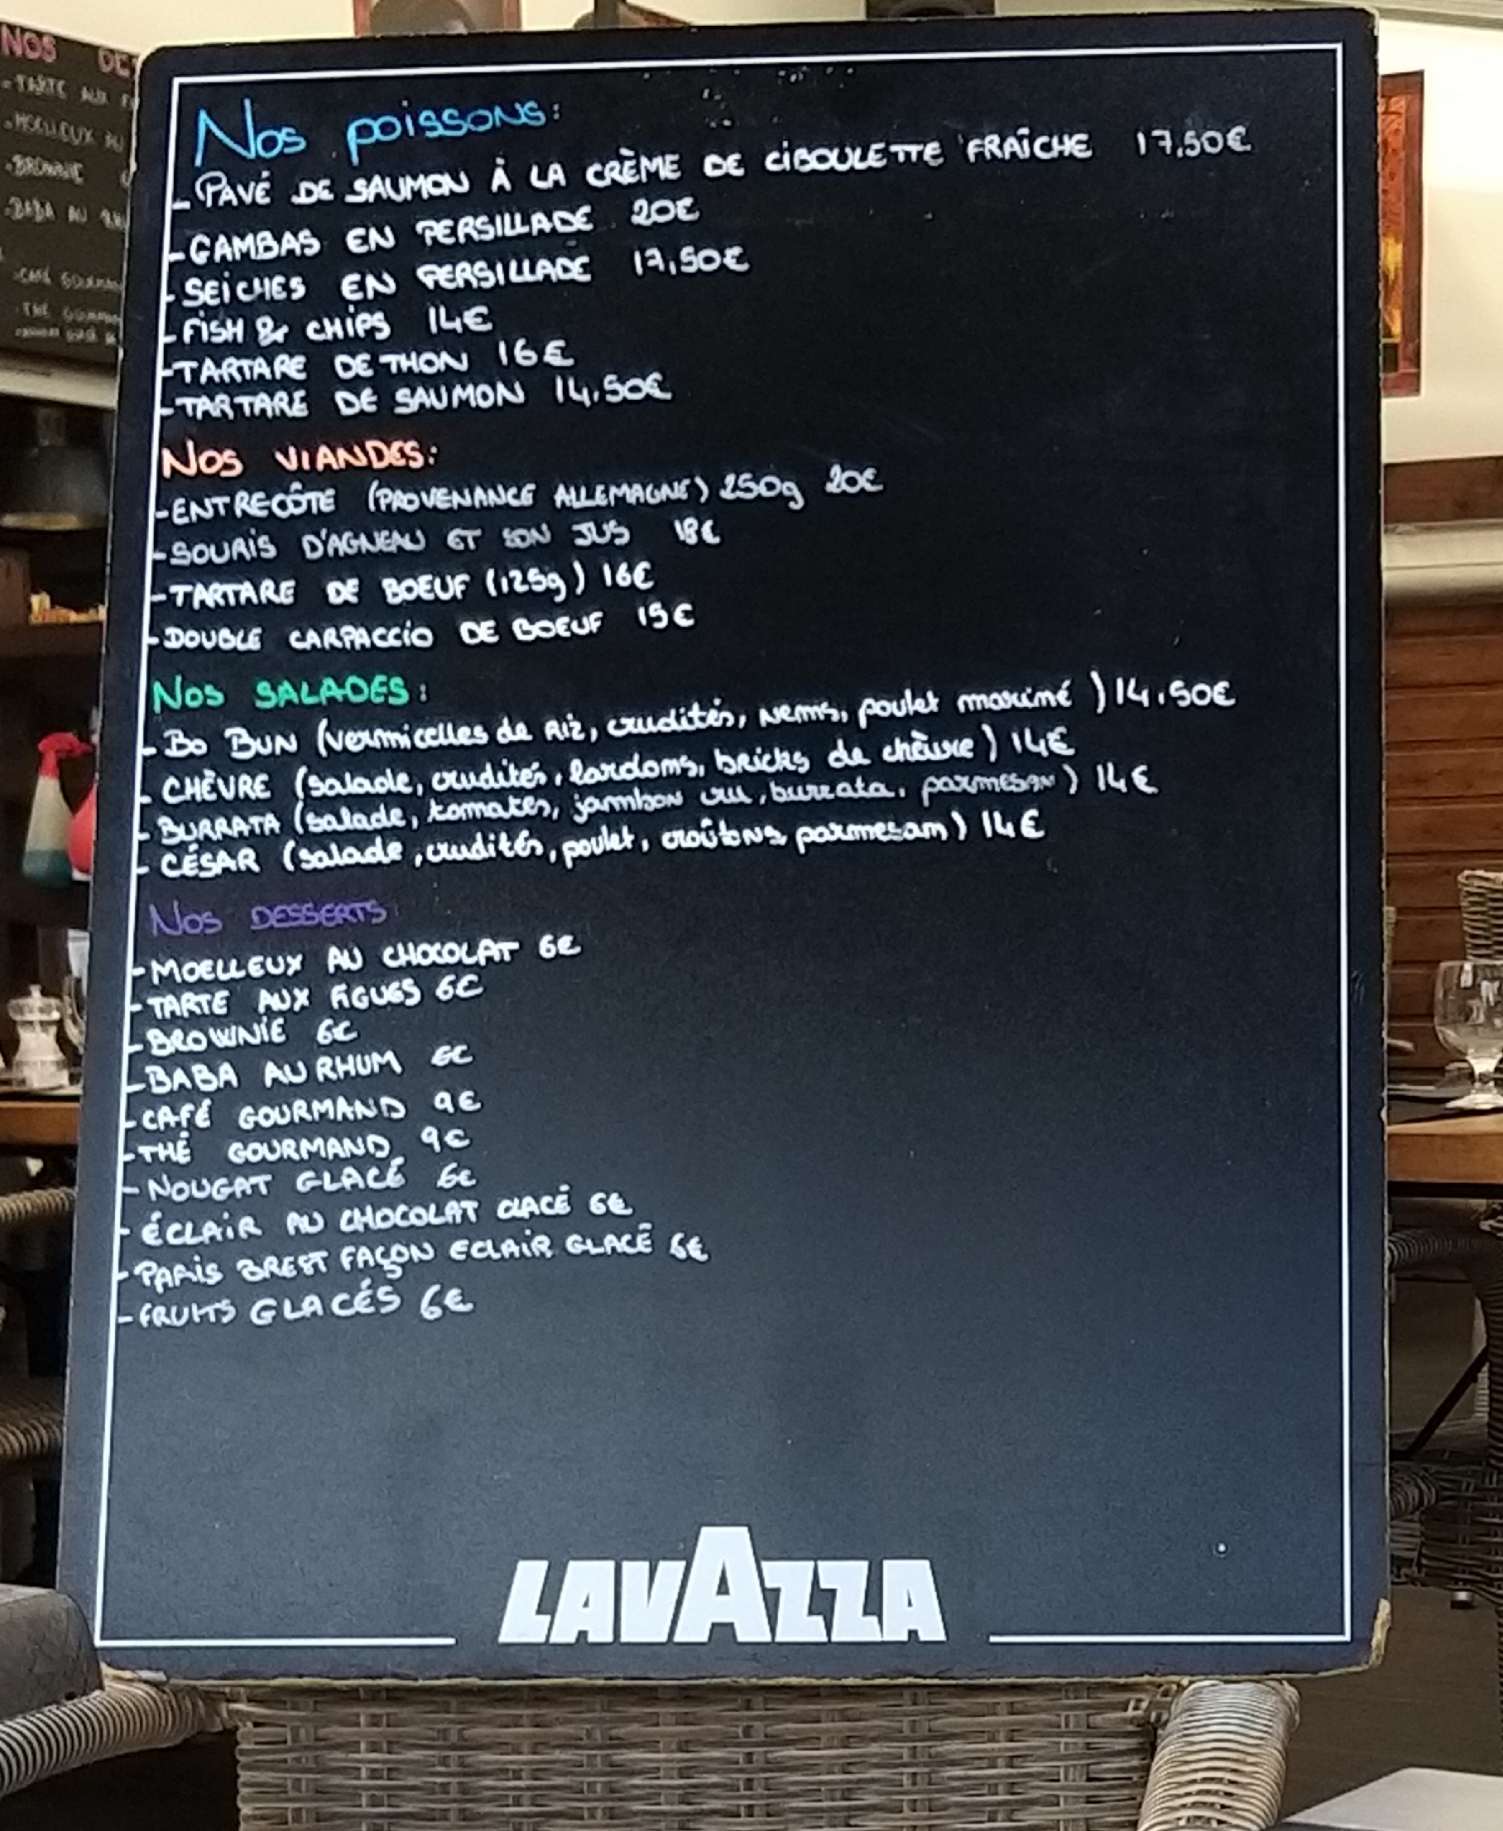 NOS DE
-TARTE AUX F
-MOELLEUX AU
-BROWNIE
-BABA AU RH
-CAFÉ GOURMAN
-THÉ GOURMAN
Nos poissons:
- PAVÉ DE SAUMON À LA CRÈME DE CIBOULETTE FRAÎCHE 17,50€
-GAMBAS EN PERSILLADE 20€
-SEICHES EN PERSILLADE 17,50€
-FISH & CHIPS 14€
-TARTARE DE THON 16€
-TARTARE DE SAUMON 14,50€
NOS VIANDES:
-ENTRECÔTE (PROVENANCE ALLEMAGNE) 250g 20€
-SOURIS D'AGNEAU ET SON JUS 18€
-TARTARE DE BOEUF (125g) 16€
-DOUBLE CARPACCIO DE BOEUF 15€
Nos SALADES:
- Bo BUN (vermicelles de Riz, crudités, nems, poulet mariné ) 14,50€
- CHÈVRE (salade, crudités, lardons, bricks de chèvre ) 14€
- BURRATA (salade, tomates, jambon cru, burrata, parmesan ) 14€
- CÉSAR (salade, crudités, poulet, croûtons parmesan) 14€
Nos DESSERTS:
-MOELLEUX AU CHOCOLAT 6€
-TARTE AUX FIGUES 6€
-BROWNIE 6€
-BABA AU RHUM 6€
-CAFÉ GOURMAND 9€
-THÉ GOURMAND 9€
-NOUGAT GLACÉ 6€
-ÉCLAIR AU CHOCOLAT GLACÉ 6€
-PARIS BREST FAÇON ECLAIR GLACÉ 6€
-FRUITS GLACÉS 6€
LAVAZZA